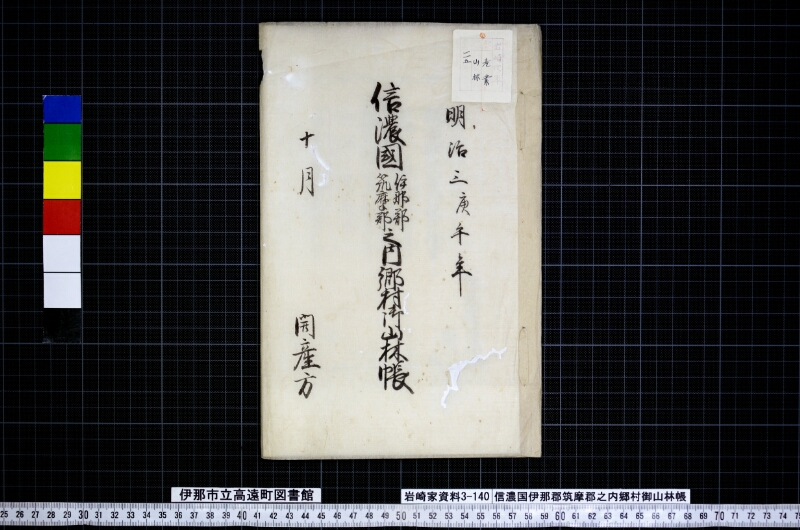 産業
山林
一五
明治三庚午年
信濃國伊那郡筑摩郡之内郷村御山林帳
十月
開産方
伊那市立高遠町図書館
岩崎家資料3-140 信濃国伊那郡筑摩郡之内郷村御山林帳
25 26 27 28 29 30 31 32 33 34 35 36 37 38 39 40 41 42 43 44 45 46 47 48 49 50 51 52 53 54 55 56 57 58 59 60 61 62 63 64 65 66 67 68 69 70 71 72 73 74